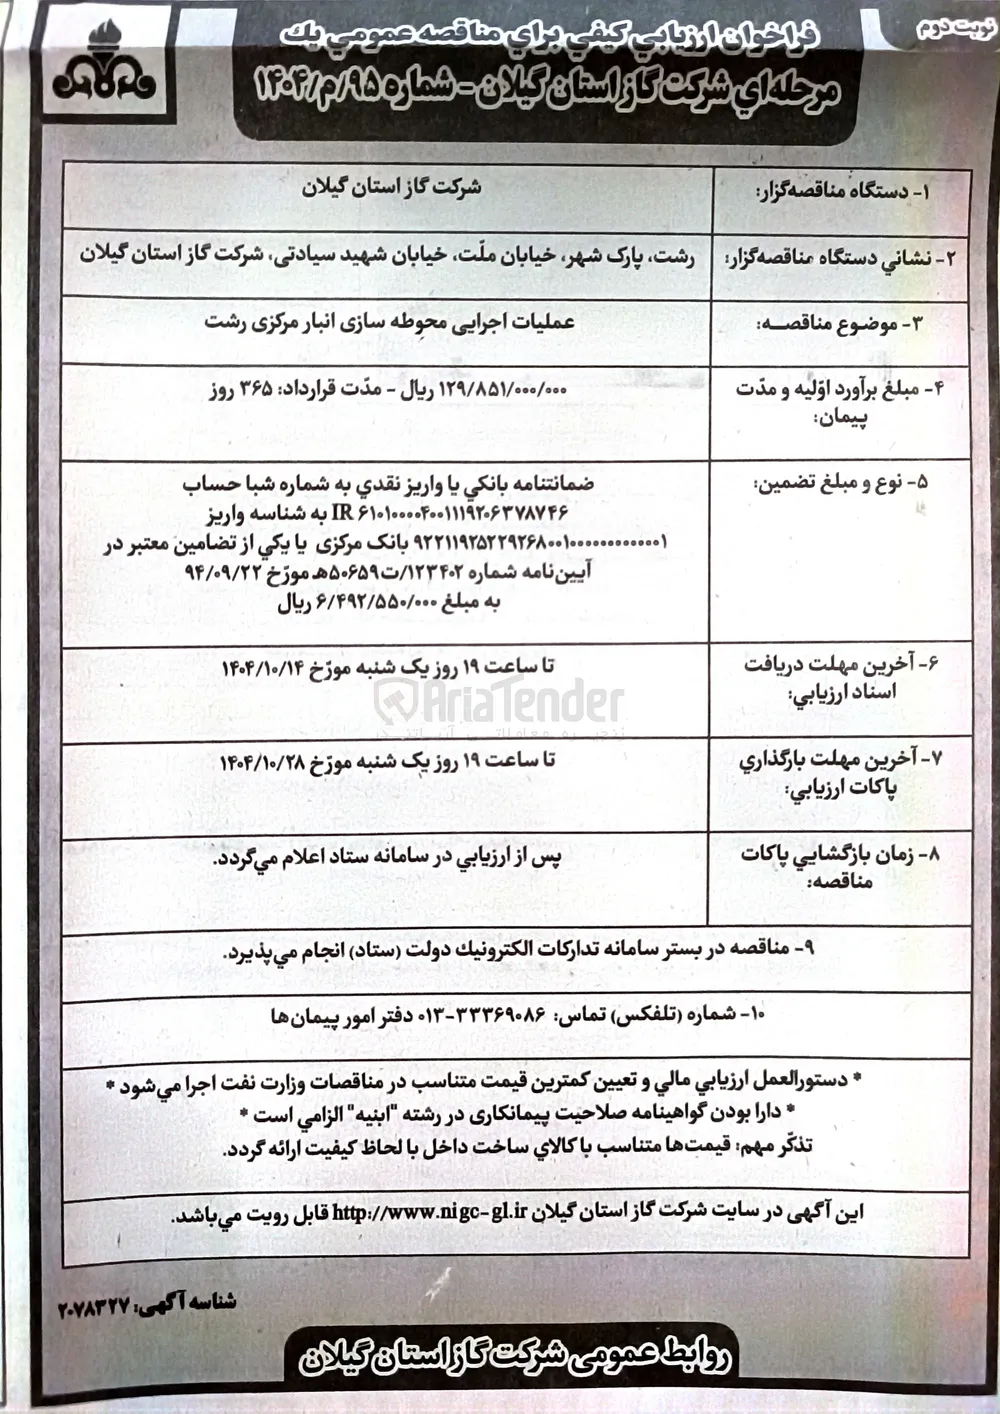 نوبت دوم
فراخوان ارزيابي كيفي براي مناقصه عمومي يك
مرحله‌اي شركت گاز استان گيلان - شماره ۹۵/م/۱۴۰۴
۱- دستگاه مناقصه‌گزار:
شرکت گاز استان گیلان
۲- نشاني دستگاه مناقصه‌گزار:
رشت، پارک شهر، خیابان ملّت، خیابان شهید سیادتی، شرکت گاز استان گیلان
۳- موضوع مناقصــه:
عملیات اجرایی محوطه سازی انبار مرکزی رشت
۴- مبلغ برآورد اوّليه و مدّت
پيمان:
۱۲۹/۸۵۱/۰۰۰/۰۰۰ ریال - مدّت قرارداد: ۳۶۵ روز
۵- نوع و مبلغ تضمين:
ضمانتنامه بانكي يا واريز نقدي به شماره شبا حساب
IR ۶۱۰۱۰۰۰۰۴۰۰۱۱۱۹۲۰۶۳۷۸۷۴۶ به شناسه واریز
بانک مرکزی يا يكي از تضامين معتبر در
آيين‌نامه شماره ۱۲۳۴۰۲/ت۵۰۶۵۹هـ مورّخ ۹۴/۰۹/۲۲
به مبلغ ۶/۴۹۲/۵۵۰/۰۰۰ ریال
۶- آخرين مهلت دريافت
اسناد ارزيابي:
تا ساعت ۱۹ روز یک شنبه مورّخ ۱۴۰۴/۱۰/۱۴
AriaTender
۷- آخرين مهلت بارگذاري
پاكات ارزيابي:
تا ساعت ۱۹ روز یک شنبه مورّخ ۱۴۰۴/۱۰/۲۸
۸- زمان بازگشايي پاكات
مناقصه:
پس از ارزيابي در سامانه ستاد اعلام مي‌گردد.
۹- مناقصه در بستر سامانه تداركات الكترونيك دولت (ستاد) انجام مي‌پذيرد.
۱۰- شماره (تلفكس) تماس: ۳۳۳۶۹۰۸۶-۰۱۳ دفتر امور پيمان‌ها
* دستورالعمل ارزيابي مالي و تعيين كمترين قيمت متناسب در مناقصات وزارت نفت اجرا مي‌شود *
* دارا بودن گواهينامه صلاحيت پيمانکاری در رشته "ابنیه" الزامي است *
تذكّر مهم: قيمت‌ها متناسب با كالاي ساخت داخل با لحاظ كيفيت ارائه گردد.
این آگهی در سایت شرکت گاز استان گیلان http://www.nigc-gl.ir قابل رویت می‌باشد.
شناسه آگهی: ۲۰۷۸۳۲۷
روابط عمومی شرکت گاز استان گیلان